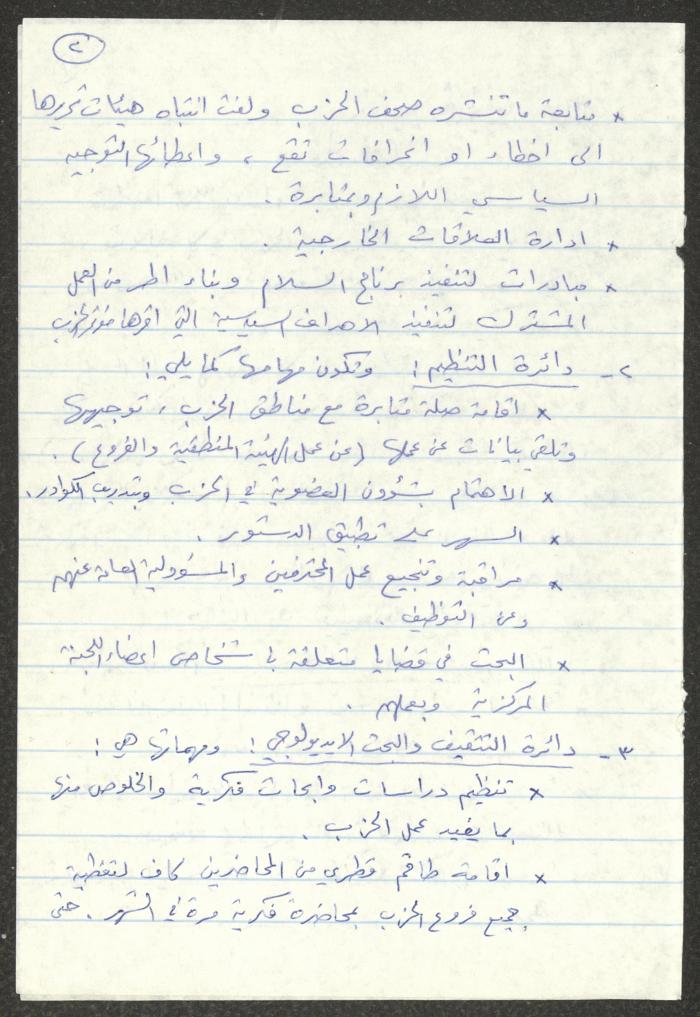 ٢
* متابعة ما تنشره صحف الحزب ولفت انتباه هيئات تحريرها
الى اخطاء او انحرافات تقع ، واعطائها التوجيه
السياسي اللازم وبمثابرة .
* ادارة العلاقات الخارجية .
* مبادرات لتنفيذ برنامج السلام وبناء اطر من العمل
المشترك لتنفيذ الاهداف السياسية التي اقرها مؤتمر الحزب
٢ - دائرة التنظيم : وتكون مهامها كما يلي :
* اقامة صلة مثابرة مع مناطق الحزب ، توجيهها
وتلقي بيانات عن عملها (عن عمل الهيئة المنطقية والفروع) .
* الاهتمام بشؤون العضوية في الحزب وبتدريب الكوادر .
* السهر على تطبيق الدستور .
* مراقبة وتنجيع عمل المحترفين والمسؤولية العامة عنهم
وعن التوظيف .
* البحث في قضايا متعلقة باشخاص اعضاء اللجنة
المركزية وبعملهم .
٣ - دائرة التثقيف والبحث الايديولوجي : ومهماتها هي :
* تنظيم دراسات وابحاث فكرية والخلوص منها
بما يفيد عمل الحزب .
* اقامة طاقم قطري من المحاضرين كاف لتغطية
جميع فروع الحزب بمحاضرة فكرية مرة في الشهر . حتى